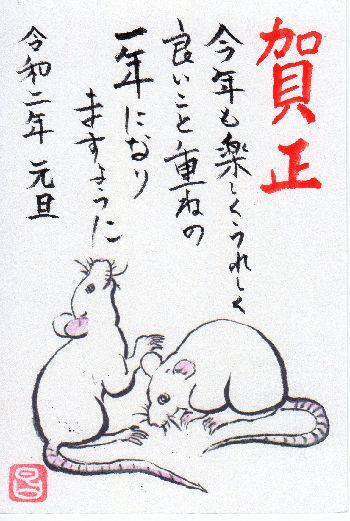 賀正
今年も楽しくうれしく
良いこと重ねの
一年になり
ますように
令和二年 元旦